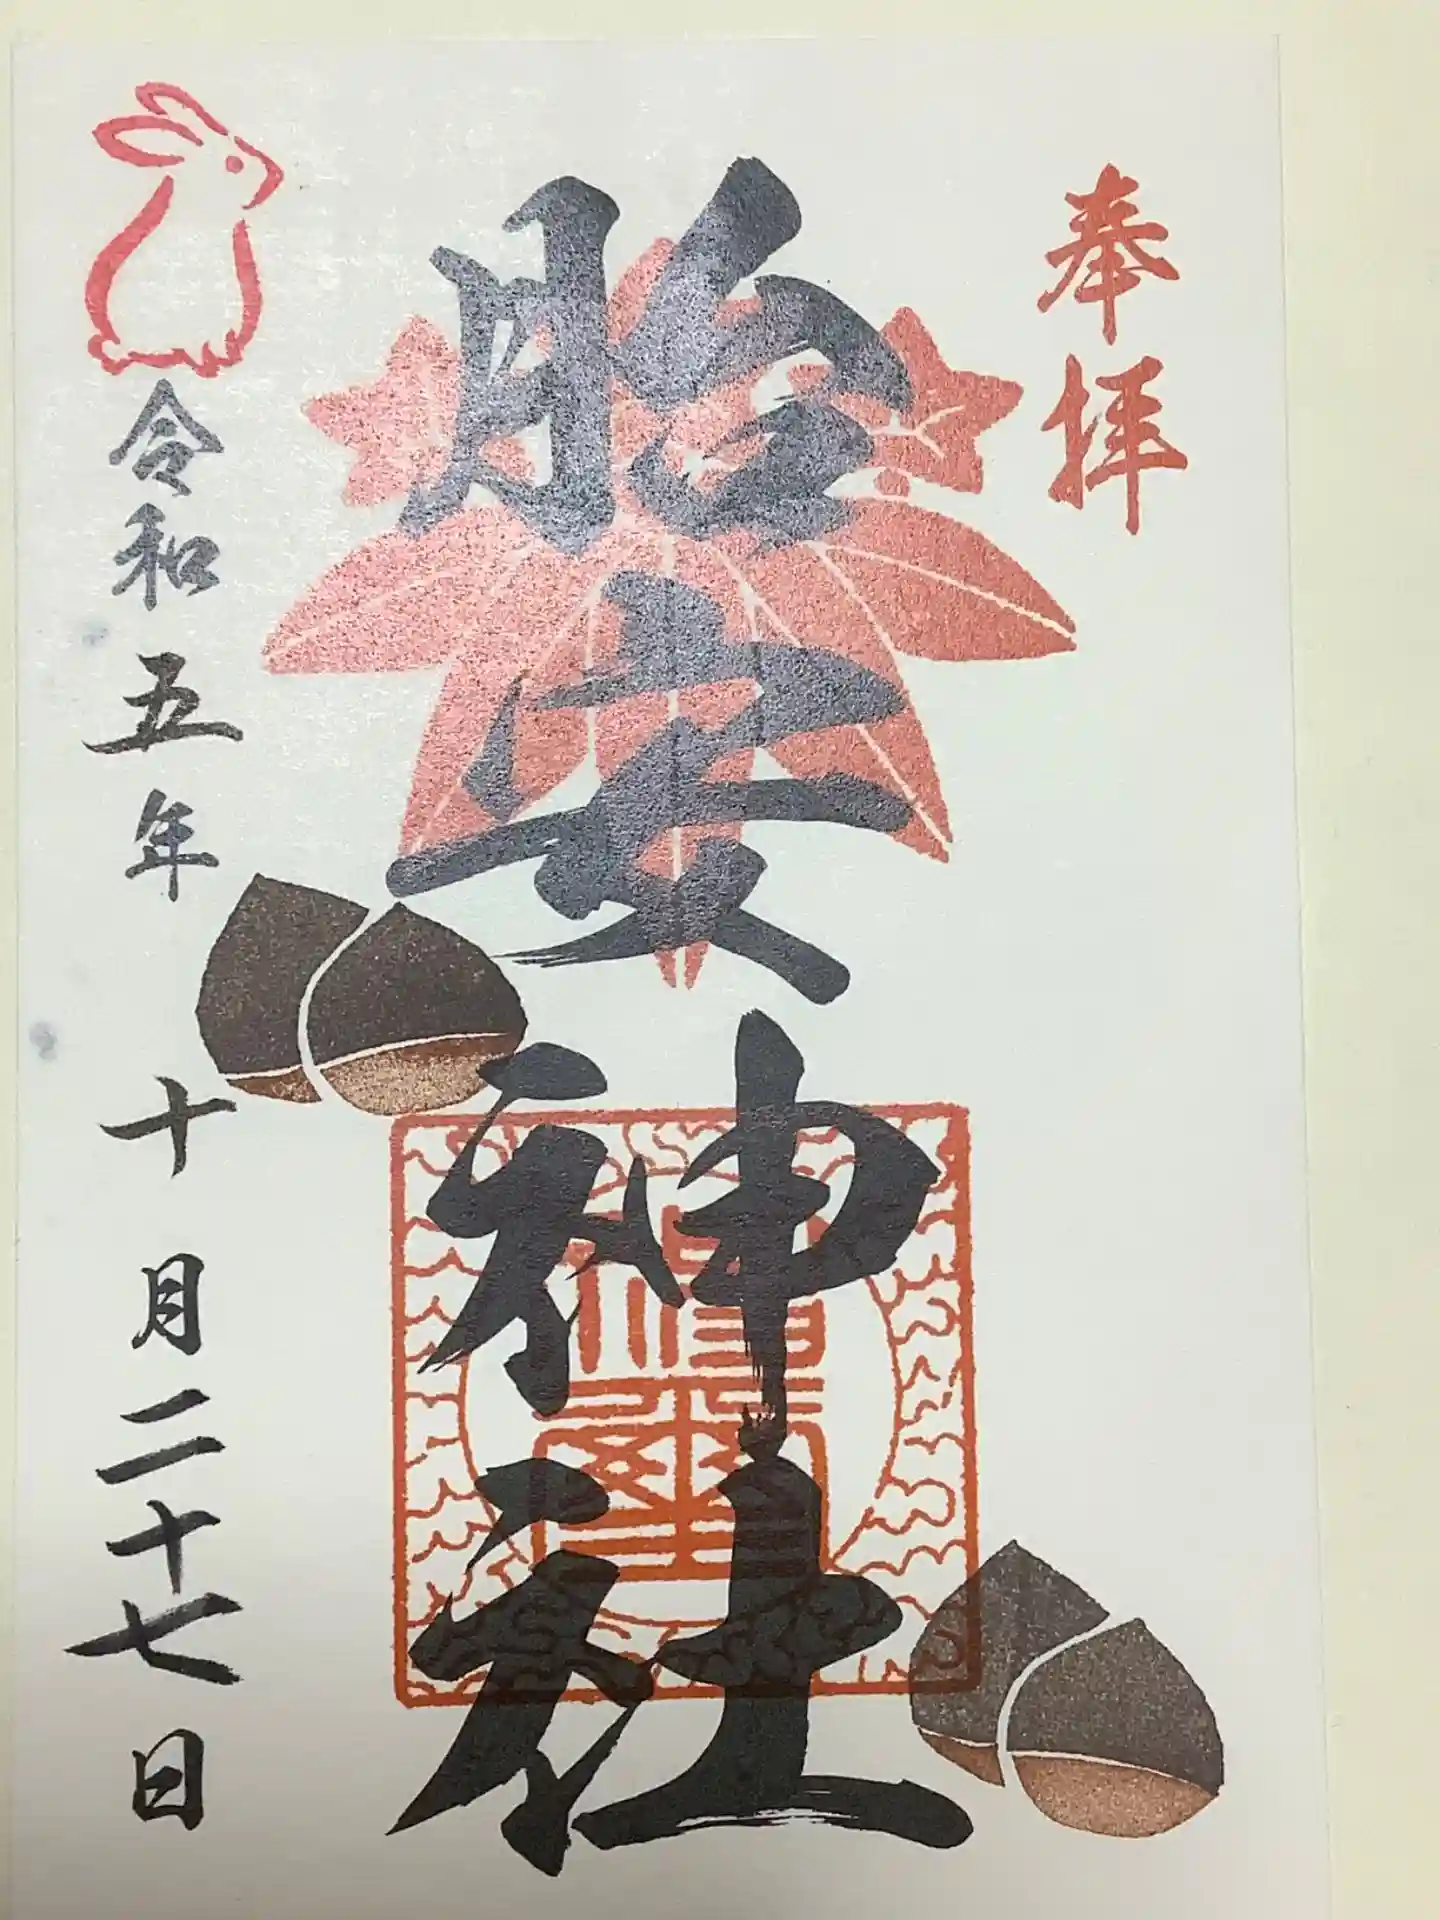 奉拝
胎安神社
令和五年十月二十七日